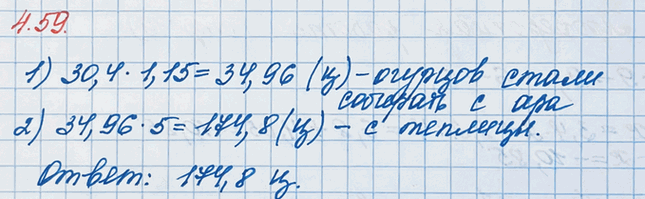 4.59.
1) 30,4 · 1,15 = 34,96 (ц) - огурцов стали
собирать с ара
2) 34,96 · 5 = 174,8 (ц) - с теплицы.
Ответ: 174,8 ц.